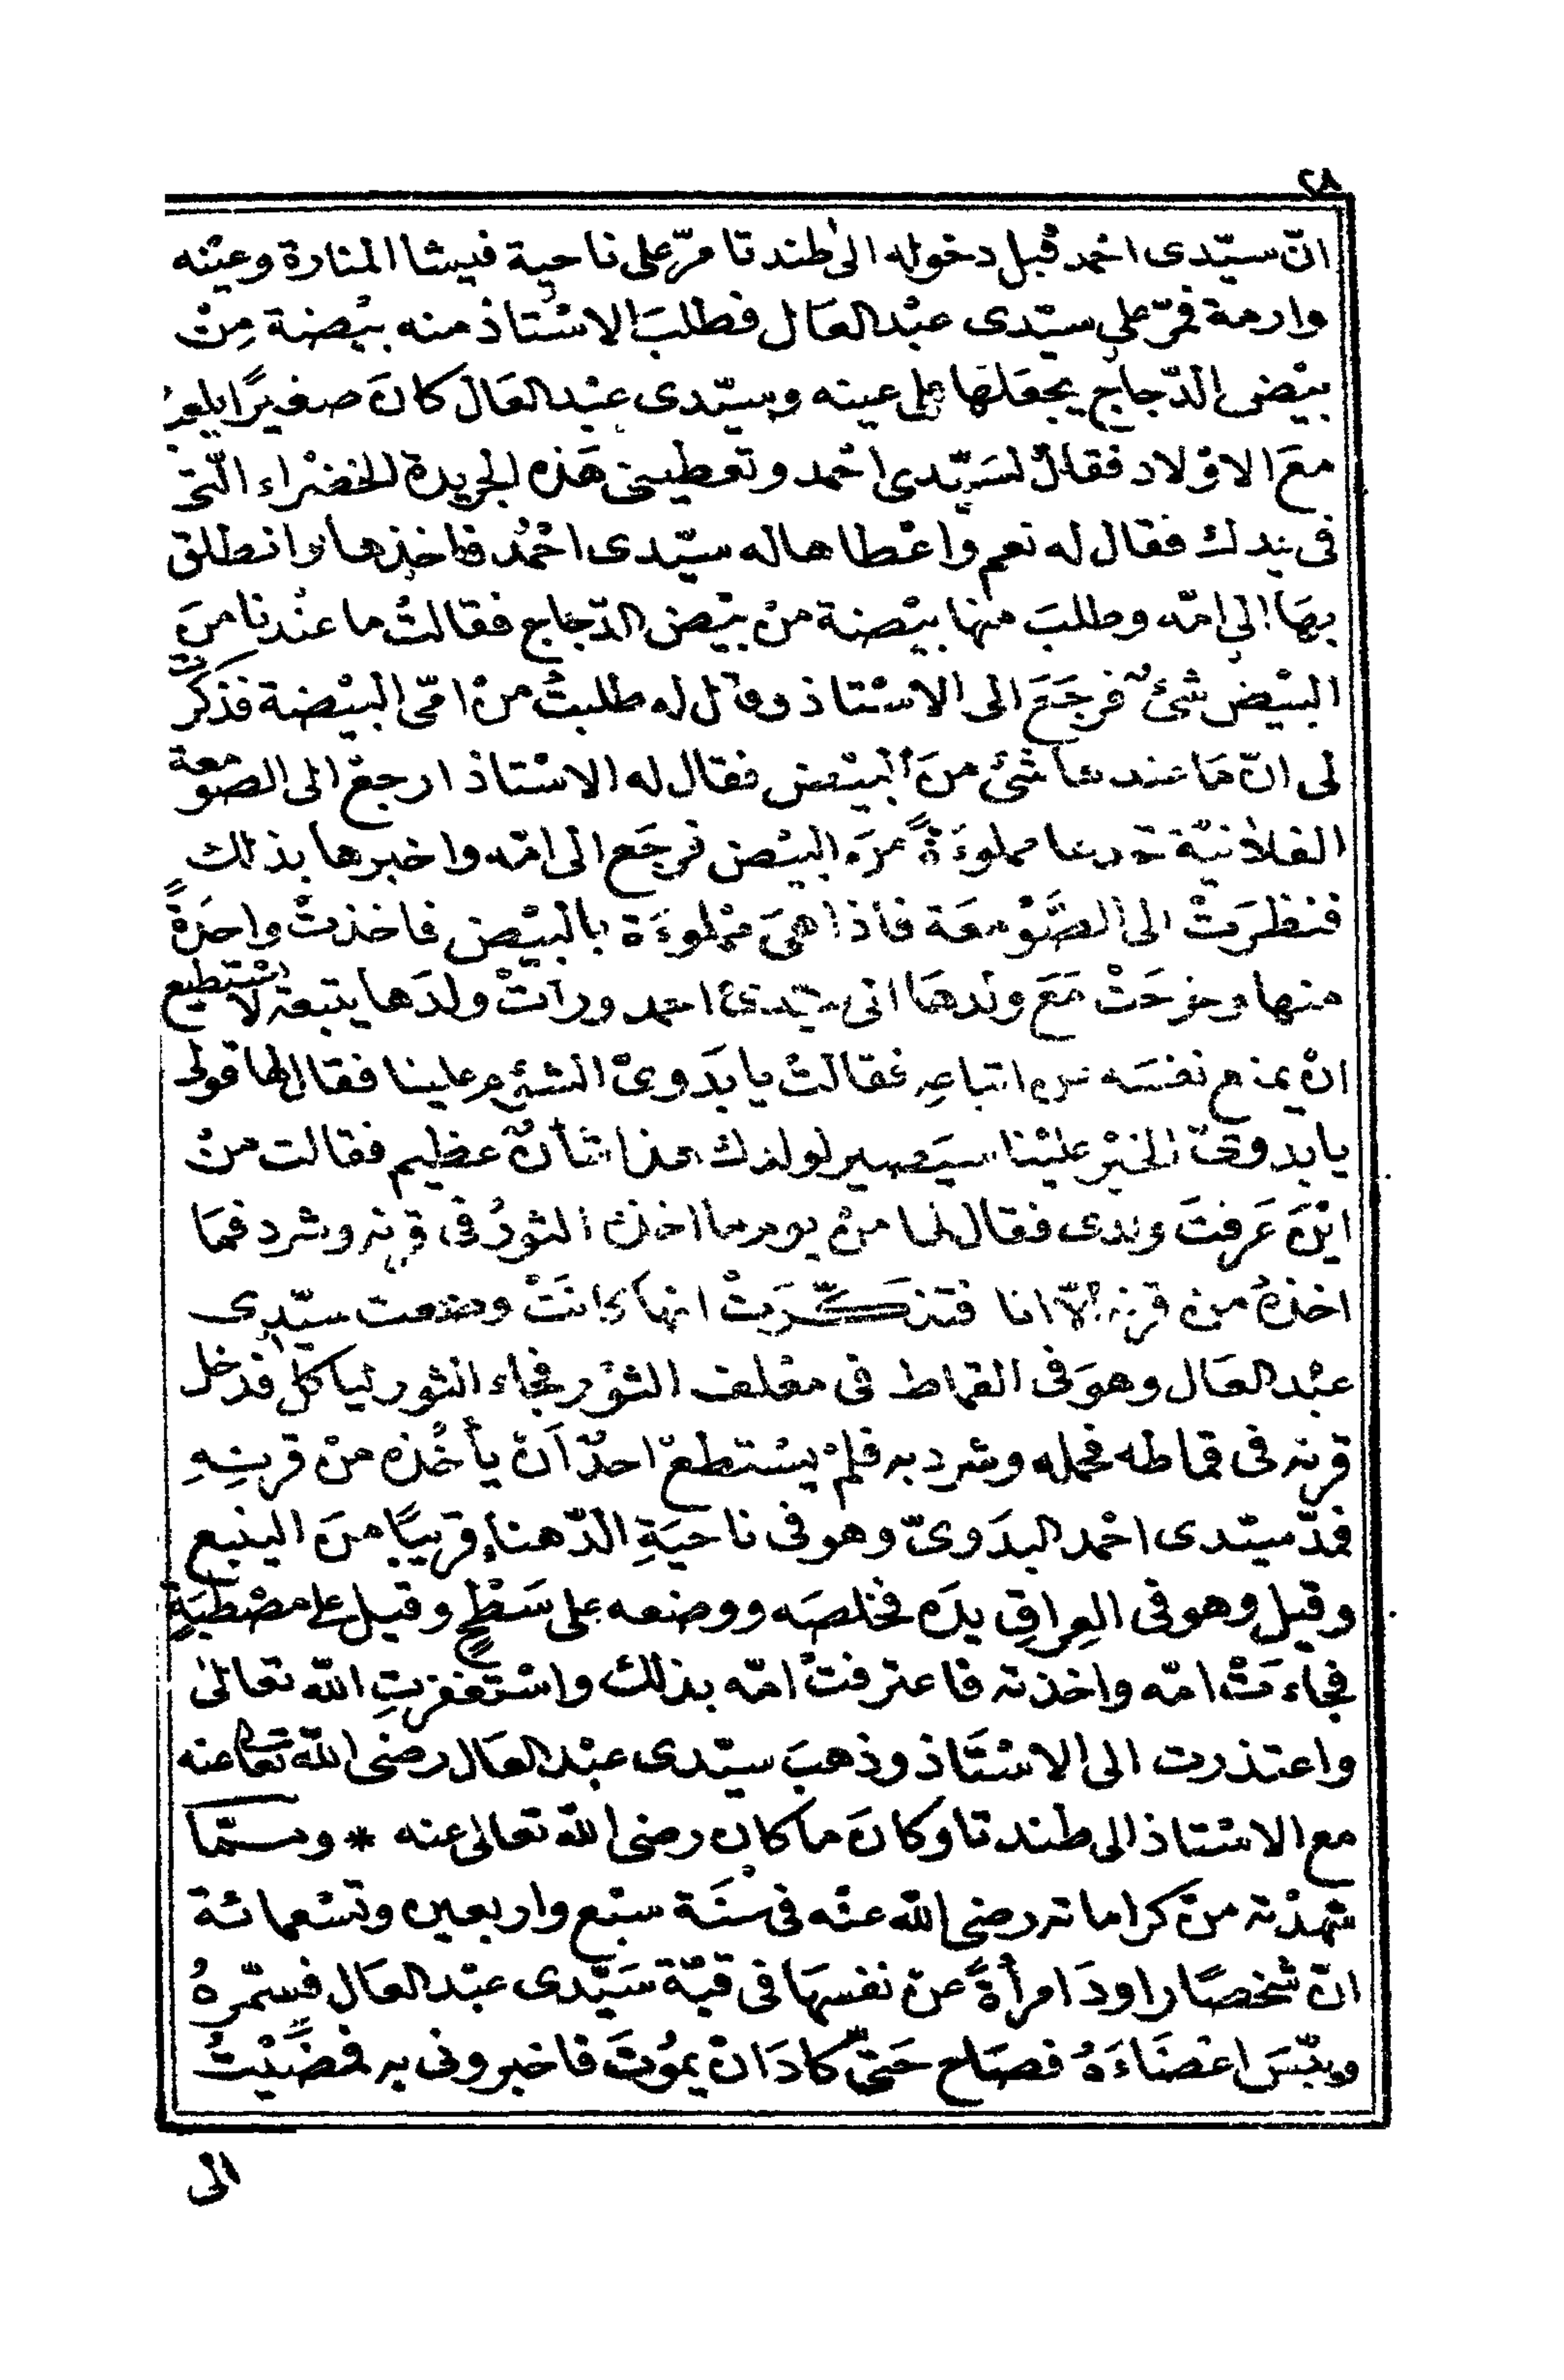 ٢٨
انّ سيّدى احْمد قبل دخوله الى طندتا مرّ على ناحية فيشا المنارة وعيْنه
وارمة فمرّ على سيّدى عبْد العَال فطلبَ الاسْتاذ منه بيْضة مِنْ
بيْض الدّجاج يجعَلهَا على عينه وسيّدى عبْد العَال كانَ صغيرًا يلعبُ
معَ الاوْلاد فقالَ لسَيّدى احْمد وتعطينى هَذه الجريدة الخضْراء الّتى
فى يَدك فقال له نعم واعْطاها له سيّدى احْمدُ فاخذها وانطلق
بهَا الى امّه وطلبَ منها بيْضة منْ بيْض الدّجاج فقالتْ ما عنْدنا منَ
البيْض شئٌ فرجَعَ الى الاسْتاذ وقال له طلبتُ منْ امّى البيْضة فذكرَتْ
لى انّ مَا عندها شئ منَ البيْض فقال له الاسْتاذ ارجعْ الى الصّوْمعة
الفلانيّة تجدها مملوءَةً منَ البيْض فرجَع الى امّه واخبرها بذلك
فنظرَتْ الى الصَّوْمعَة فاذا هىَ ممْلوءَة بالبيْض فاخذتْ واحدَةً
منها وخرجَتْ مَعَ ولدهَا الى سيّدى احمد ورأتْ ولدَها يتبعه لا يسْتطيع
انْ يمنع نفسَه من اتباعِه فقالتْ يا بدَوىّ الشؤم علينا فقال لها قولى
يا بدوىّ الخيْر عليْنا سيَصير لولدك هذا شأنٌ عظيم فقالت منْ
ايْنَ عَرفتَ ولدى فقال لها منْ يوم ما اخذه الثورُ فى قرنه وشرد فمَا
اخذهُ من قرنه الّا انا فتذكّرَتْ انها كانَتْ وضعت سيّدى
عبْد العَال وهوَ فى القماط فى معْلف الثوْر فجاء الثور ليأكل فدخل
قرنه فى قماطه فحمله وشرد به فلمْ يسْتطعْ احدٌ أنْ يأخُذه منْ قرنِهِ
فمدّ سيّدى احْمد البدَوىّ وهو فى ناحيَةِ الدّهناءِ قريبًا منَ الينبع
وقيل وهو فى العِراقِ يدَه فخلصَه ووضعه على سَطْحٍ وقيل على مصْطبَةٍ
فجاءَتْ امّه واخذته فاعترفتْ امّه بذلك واسْتغفرَتِ الله تعالىٰ
واعتذرت الى الاسْتَاذ وذهبَ سيّدى عبْد العَال رضى الله تعالى عنه
مع الاسْتاذ الى طندتا وكانَ ما كان رضى الله تعالى عنه * وممّا
شهدْته منْ كراماته رضى الله عنْه فى سْنَة سبْع واربعين وتسْعمائة
انّ شخصًا راودَ امرأةً عنْ نفسهَا فى قبّة سَيّدى عبْد العَال فسمّرهُ
ويبّسَ اعْضَاءَهُ فصَاح حَتىّ كادَ انْ يموُتَ فاخبرونى به فمضَيْتُ
الى